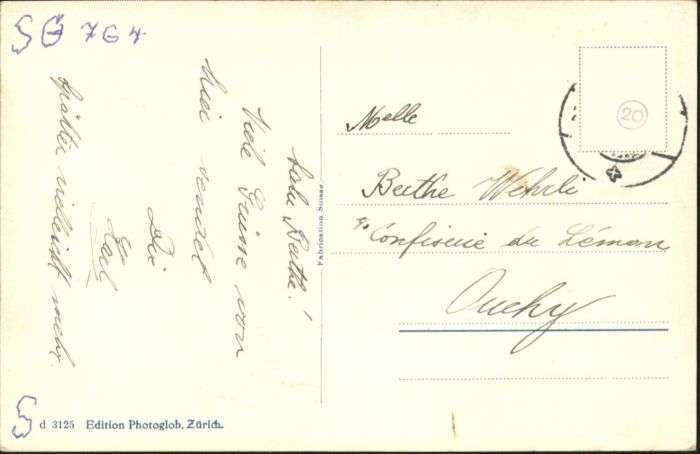 SG 7G4
Liebe Berthe!
Viele Grüsse von
hier sendet
Dir
Später vielleicht mehr.
Melle
Berthe Wehrli
Confiserie du Léman
Ouchy
20
Fabrication Suisse
d 3125 Edition Photoglob, Zürich.